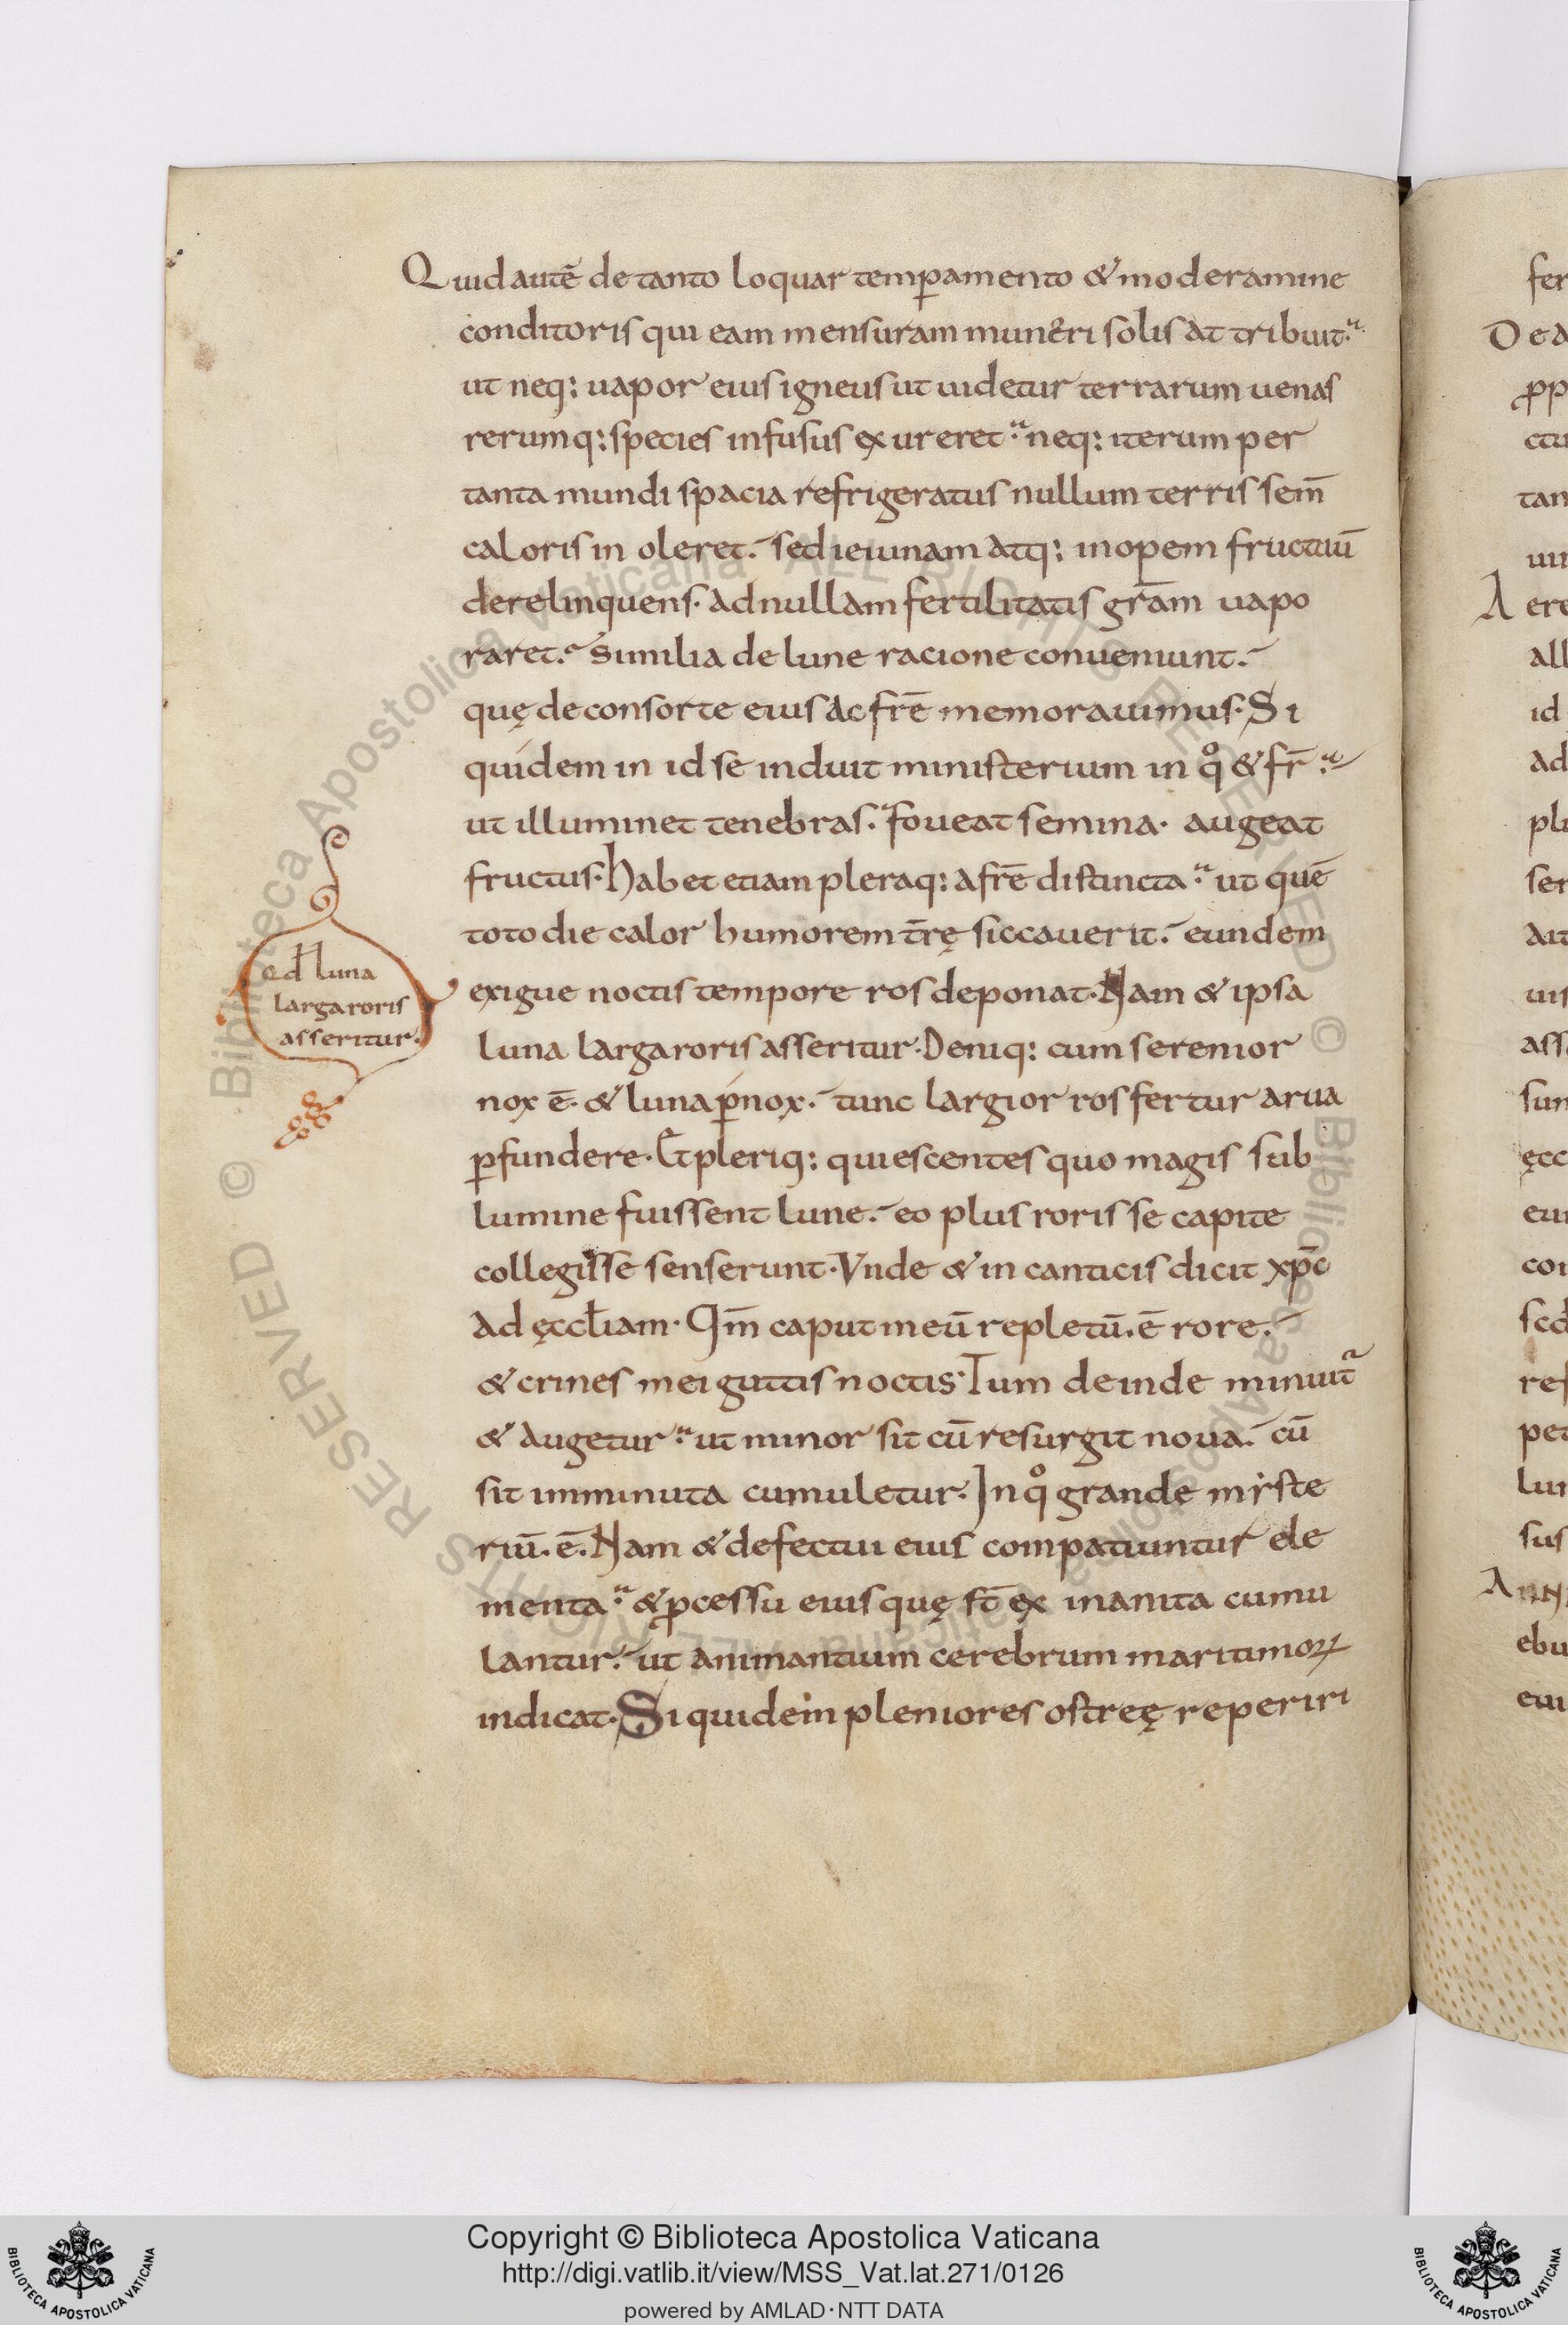 Quid autē de tanto loquar temꝑamento & moderamine
conditoris qui eam mensuram muneri solis attribuit.
ut neq: uapor eius igneus ut uidetur terrarum uenas
rerumq: species infusus exureret. neq: iterum per
tanta mundi spacia refrigeratus nullum terris sem̄
caloris inoleret. sed ieiunam atq: inopem fructuū
derelinquens. ad nullam fertilitatis grām uapo
raret. Similia de lune racione conueniunt.
quę de consorte eius ac frē memorauimus. Si
quidem in id se induit ministerium in qͦ & fr̄.
ut illuminet tenebras. foueat semina. augeat
fructus. Habet etiam pleraq: a frē distincta. ut quē
toto die calor humorem tr̄ę siccauerit. eundem
exigue noctis tempore ros deponat. Nam & ipsa
luna larga roris asseritur. Deniq: cum serenior
nox ē. & luna ꝑnox. tunc largior ros fertur arua
ꝑfundere. Et pleriq: quiescentes quo magis sub
lumine fuissent lune. eo plus roris se capite
collegisse senserunt. Vnde & in canticis dicit xp̄c
ad ęccƚiam. Qm̄ caput meū repletū. ē rore.
& crines mei guttis noctis. Tum deinde minuit̃
& augetur. ut minor sit cū resurgit noua. cū
sit imminuta cumuletur. In qͦ grande mẏste
riū. ē. Nam & defectui eius compatiuntur ele
menta. & ꝓcessu eius quę st̄ exinanita cumu
lantur. ut animantium cerebrum maritimoꝝ
indicat. Siquidem pleniores ostreę reperiri
luna
larga roris
asseritur.
fer
De a
ꝓp
ctu
tan
uii
A ere
all
id
ad
plu
ser
ait
uis
ass
sun
ęcc
eui
con
scd
ref
pet
lun
sus
Ann
ebu
eiu
© Biblioteca Apostolica Vaticana ALL RIGHTS RESERVED © Biblioteca Apostolica Vaticana ALL RIGHTS RESERVED
Copyright © Biblioteca Apostolica Vaticana
http://digi.vatlib.it/view/MSS_Vat.lat.271/0126
powered by AMLAD·NTT DATA
BIBLIOTECA APOSTOLICA VATICANA
BIBLIOTECA APOSTOLICA VATICANA